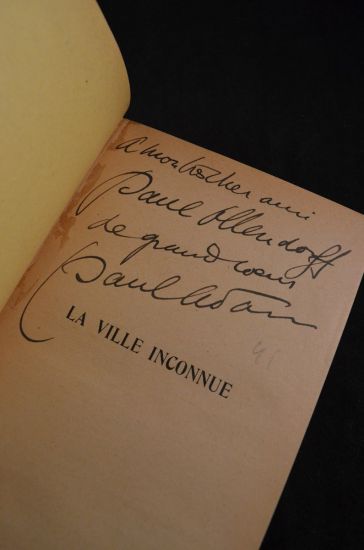 A mon très cher ami
Paul Ollendorff
de grand cœur
Paul Adam
LA VILLE INCONNUE